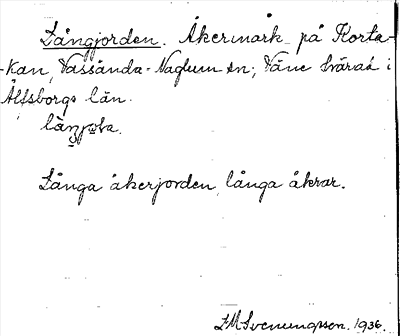 Långjorden. Åkermark på Korta-
-kan, Vassända-Naglum sn; Väne härad i
Älfsborgs län.
Långa åkerjorden, långa åkrar.
L M Svenungsson. 1936.